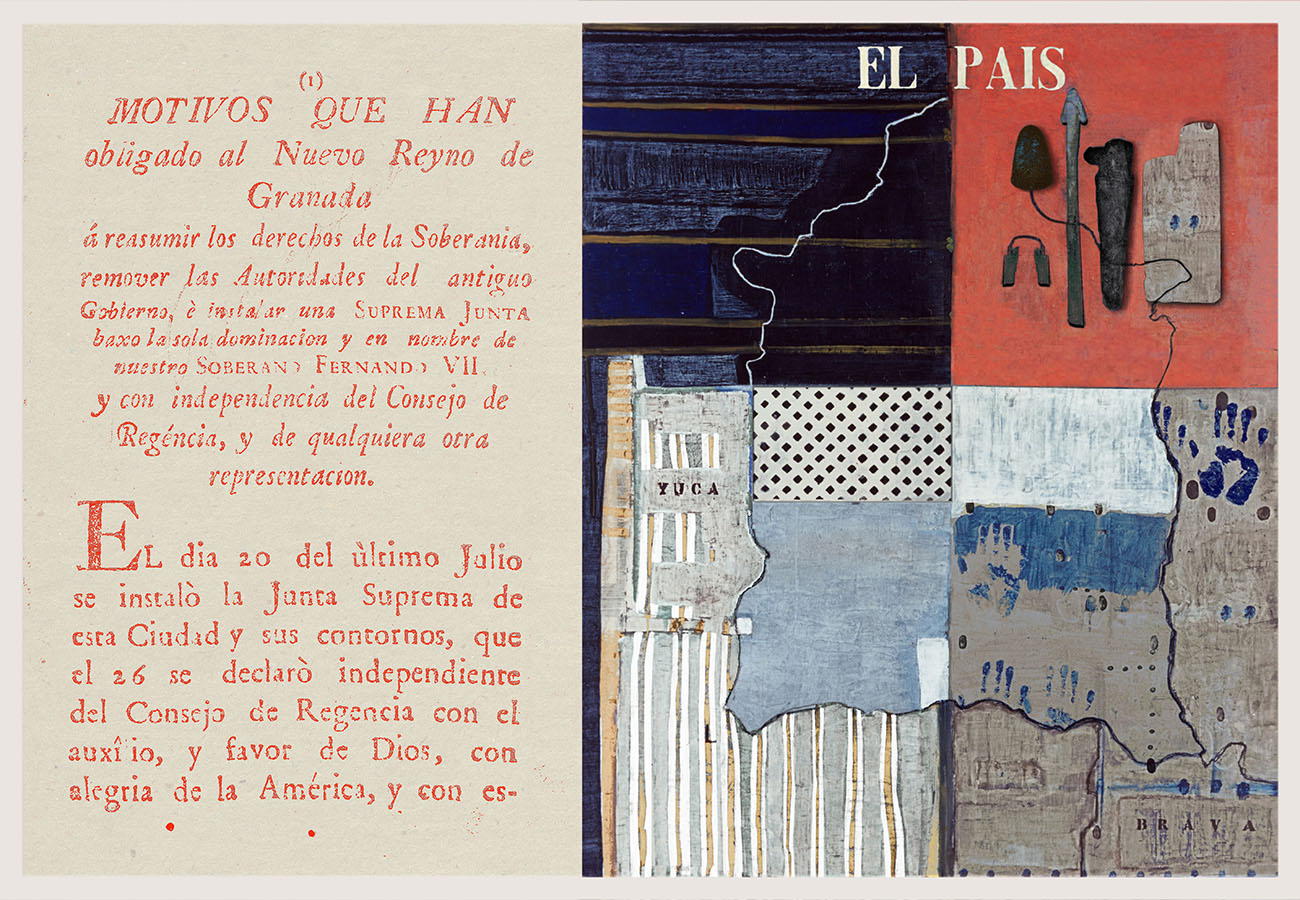 (1)
MOTIVOS QUE HAN
obligado al Nuevo Reyno de
Granada
á reasumir los derechos de la Soberania,
remover las Autoridades del antiguo
Gobierno, è instalar una SUPREMA JUNTA
baxo la sola dominacion y en nombre de
nuestro SOBERANO FERNANDO VII.
y con independencia del Consejo de
Regéncia, y de qualquiera otra
representacion.
EL dia 20 del ùltimo Julio
se instalò la Junta Suprema de
esta Ciudad y sus contornos, que
el 26 se declarò independiente
del Consejo de Regencia con el
auxîlio, y favor de Dios, con
alegria de la América, y con es-
EL PAIS
YUCA
BRAVA